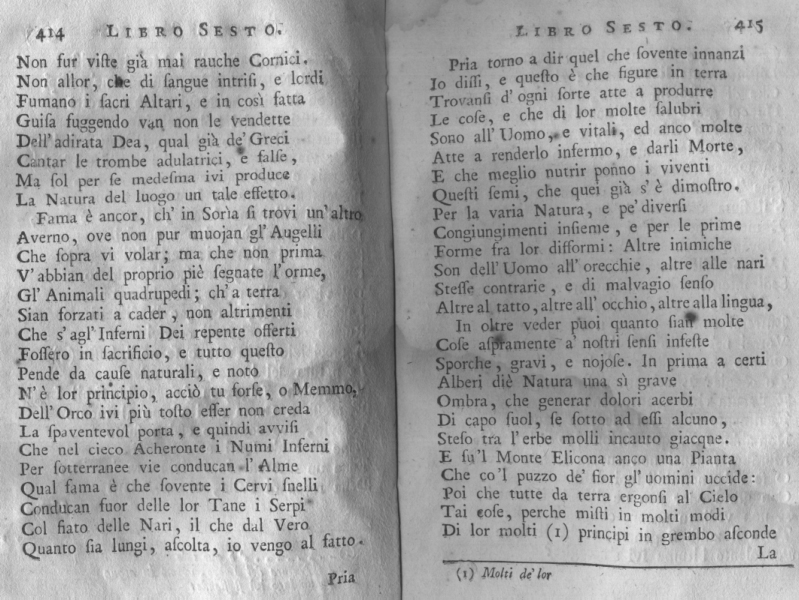 414 LIBRO SESTO.
Non fur viſte già mai rauche Cornici.
Non allor, che di ſangue intriſi, e lordi
Fumano i ſacri Altari, e in così fatta
Guiſa fuggendo van non le vendette
Dell'adirata Dea, qual già de' Greci
Cantar le trombe adulatrici, e falſe,
Ma ſol per ſe medeſma ivi produce
La Natura del luogo un tale effetto.
Fama è ancor, ch' in Soria ſi trovi un'altro
Averno, ove non pur muojan gl' Augelli
Che ſopra vi volar; ma che non prima
V' abbian del proprio piè ſegnate l'orme,
Gl' Animali quadrupedi; ch' a terra
Sian forzati a cader, non altrimenti
Che s' agl' Inferni Dei repente offerti
Foſſero in ſacrificio, e tutto queſto
Pende da cauſe naturali, e noto
N' è lor principio, acciò tu forſe, o Memmo,
Dell' Orco ivi più toſto eſſer non creda
La ſpaventevol porta, e quindi avviſi
Che nel cieco Acheronte i Numi Inferni
Per ſotterranee vie conducan l' Alme
Qual fama è che ſovente i Cervi ſnelli
Conducan fuor delle lor Tane i Serpi
Col fiato delle Nari, il che dal Vero
Quanto ſia lungi, aſcolta, io vengo al fatto.
Pria
LIBRO SESTO. 415
Pria torno a dir quel che ſovente innanzi
Io diſſi, e queſto è che figure in terra
Trovanſi d' ogni ſorte atte a produrre
Le coſe, e che di lor molte ſalubri
Sono all' Uomo, e vitali, ed anco molte
Atte a renderlo infermo, e darli Morte,
E che meglio nutrir ponno i viventi
Queſti ſemi, che quei già s' è dimoſtro.
Per la varia Natura, e pe' diverſi
Congiungimenti inſieme, e per le prime
Forme fra lor difformi: Altre inimiche
Son dell' Uomo all' orecchie, altre alle nari
Steſſe contrarie, e di malvagio ſenſo
Altre al tatto, altre all' occhio, altre alla lingua,
In oltre veder puoi quanto ſian molte
Coſe aſpramente a' noſtri ſenſi infeſte
Sporche, gravi, e nojoſe. In prima a certi
Alberi diè Natura una sì grave
Ombra, che generar dolori acerbi
Di capo ſuol, ſe ſotto ad eſſi alcuno,
Steſo tra l' erbe molli incauto giacque.
E ſu'l Monte Elicona anco una Pianta
Che co'l puzzo de' fior gl' uomini uccide:
Poi che tutte da terra ergonſi al Cielo
Tai coſe, perche miſti in molti modi
Di lor molti (1) principi in grembo aſconde
La
(1) Molti de' lor